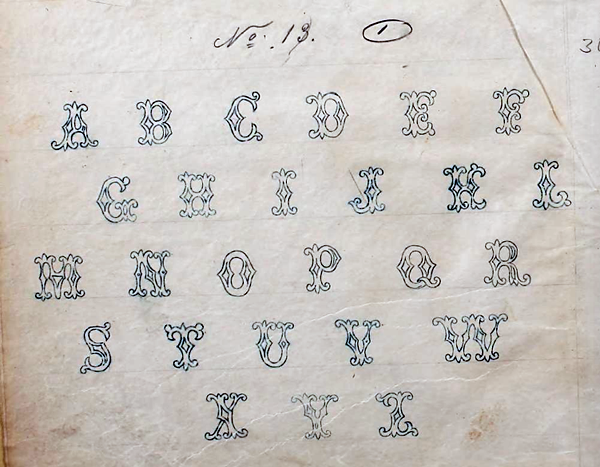 No. 13. 1
A B C D E F
G H I J K L
M N O P Q R
S T U V W
X Y Z